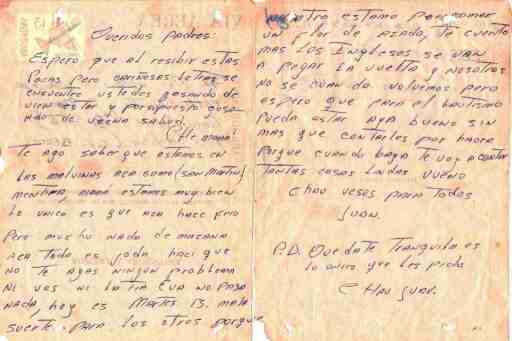 Queridos padres:
Espero que al recibir estas
Pocas pero cariñosas letras se
encuentre ustedes gosando de
vien estar y porsupuesto gosa
ndo de vuena salud.
Che mama!
Te ago saber que estamos en
Las malvinas aca goma (san martin)
mentira, mama estamos muy bien
Lo unico es que aca hace frio
Pero mucho nada de mañana
aca todo es joda haci que
no te agas ningun problema
ni vos ni la tia Eva no pasa
nada, hoy es Martes 13. mala
suerte. para los otros porque
nosotro estamo por comer
un flor de asado, te cuento
mas los Ingleses se van
a pegar la vuelta y nosotros
no se cuando volvemos pero
espero que para el bautismo
pueda estar aya bueno sin
mas que contarles por haora
Porque cuando baya te voy a contar
tantas cosas lindas vueno
Chau veses para todos
Juan.
P.D. Quedate tranquila es
lo unico que les pido
Chau Juan.